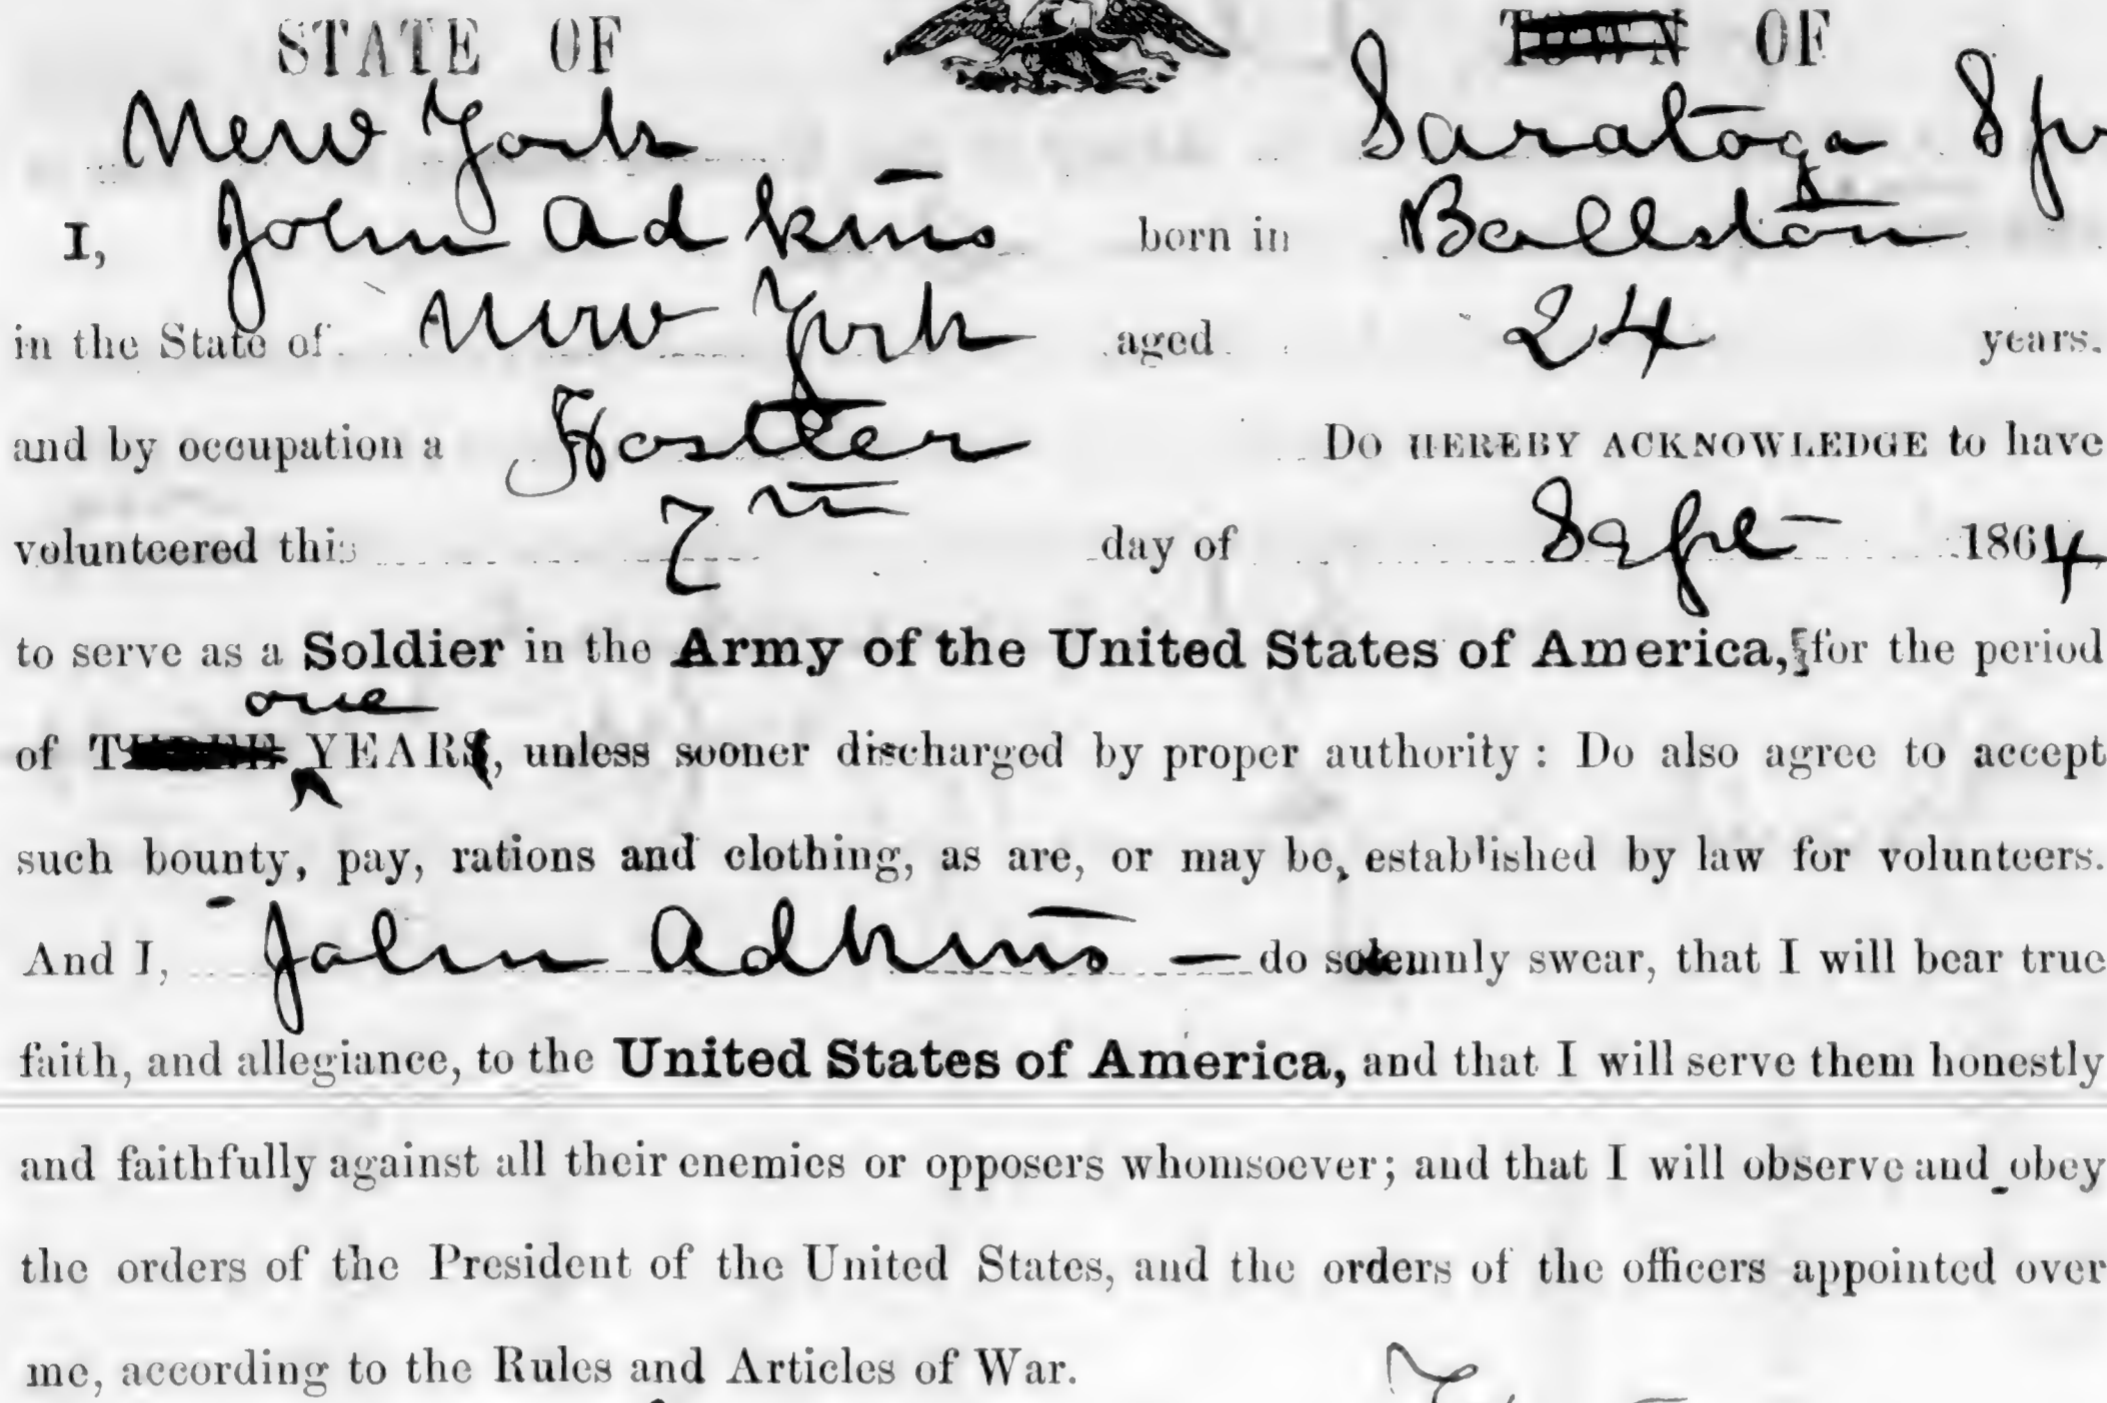 STATE OF TOWN OF
New York Saratoga Sp
I, John Adkins born in Ballston
in the State of New York aged 24 years.
and by occupation a Hostler Do HEREBY ACKNOWLEDGE to have
volunteered this 7th day of Sept 1864,
to serve as a Soldier in the Army of the United States of America, for the period
one
of THREE YEARS, unless sooner discharged by proper authority: Do also agree to accept
such bounty, pay, rations and clothing, as are, or may be, established by law for volunteers.
And I, John Adkins — do solemnly swear, that I will bear true
faith, and allegiance, to the United States of America, and that I will serve them honestly
and faithfully against all their enemies or opposers whomsoever; and that I will observe and obey
the orders of the President of the United States, and the orders of the officers appointed over
me, according to the Rules and Articles of War.